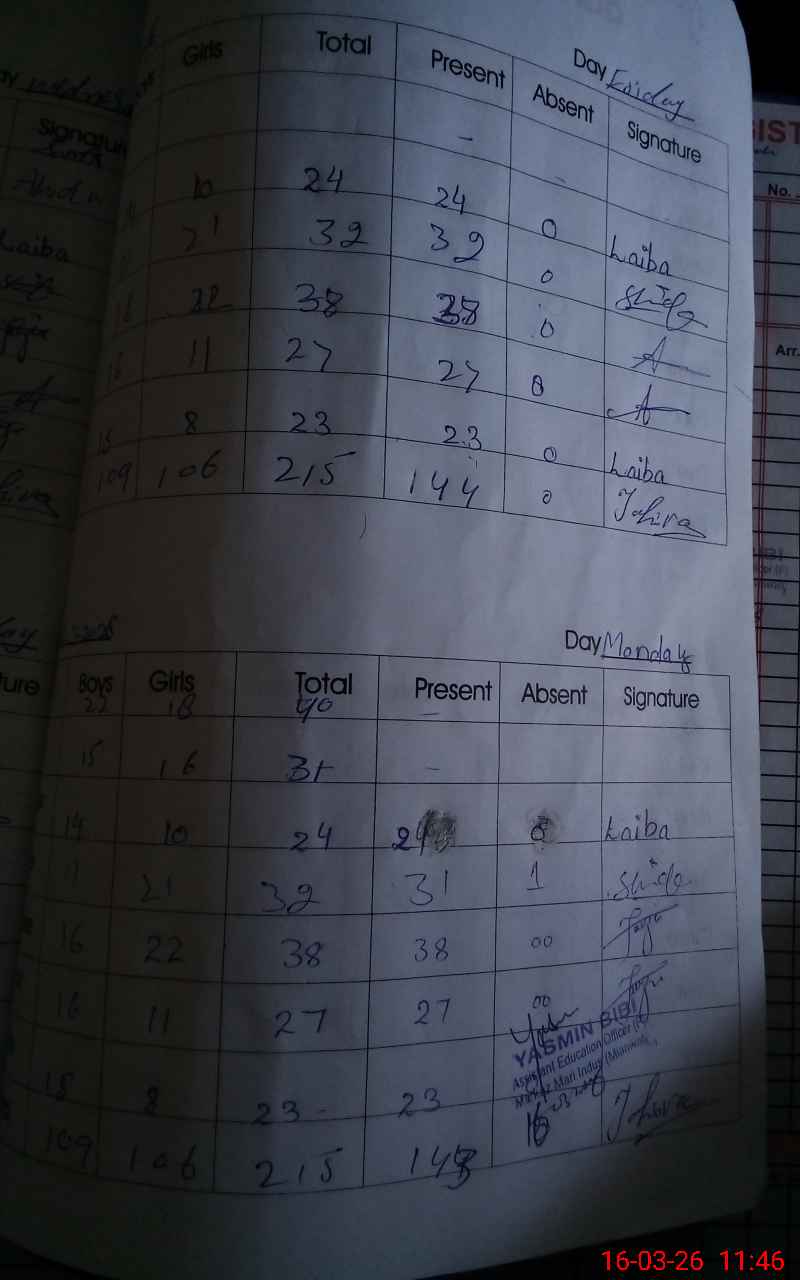 Day Friday
Girls Total Present Absent Signature
-
10 24 24 0 Laiba
21 32 32 0
22 38 38 0 A
11 27 27 0 A
15 8 23 23 0 Laiba
109 106 215 144 0 Tahira
Day Monday
Boys Girls Total Present Absent Signature
22 18 40 -
15 16 31 -
14 10 24 24 0 Laiba
11 21 32 31 1
16 22 38 38 00
16 11 27 27 00
YASMIN BIBI
Assistant Education Officer
Markaz Mari Indus (Mianwali)
15 8 23 23
109 106 215 143 Tahira
Signature
Laiba
IST
No.
Arr.
16-03-26 11:46